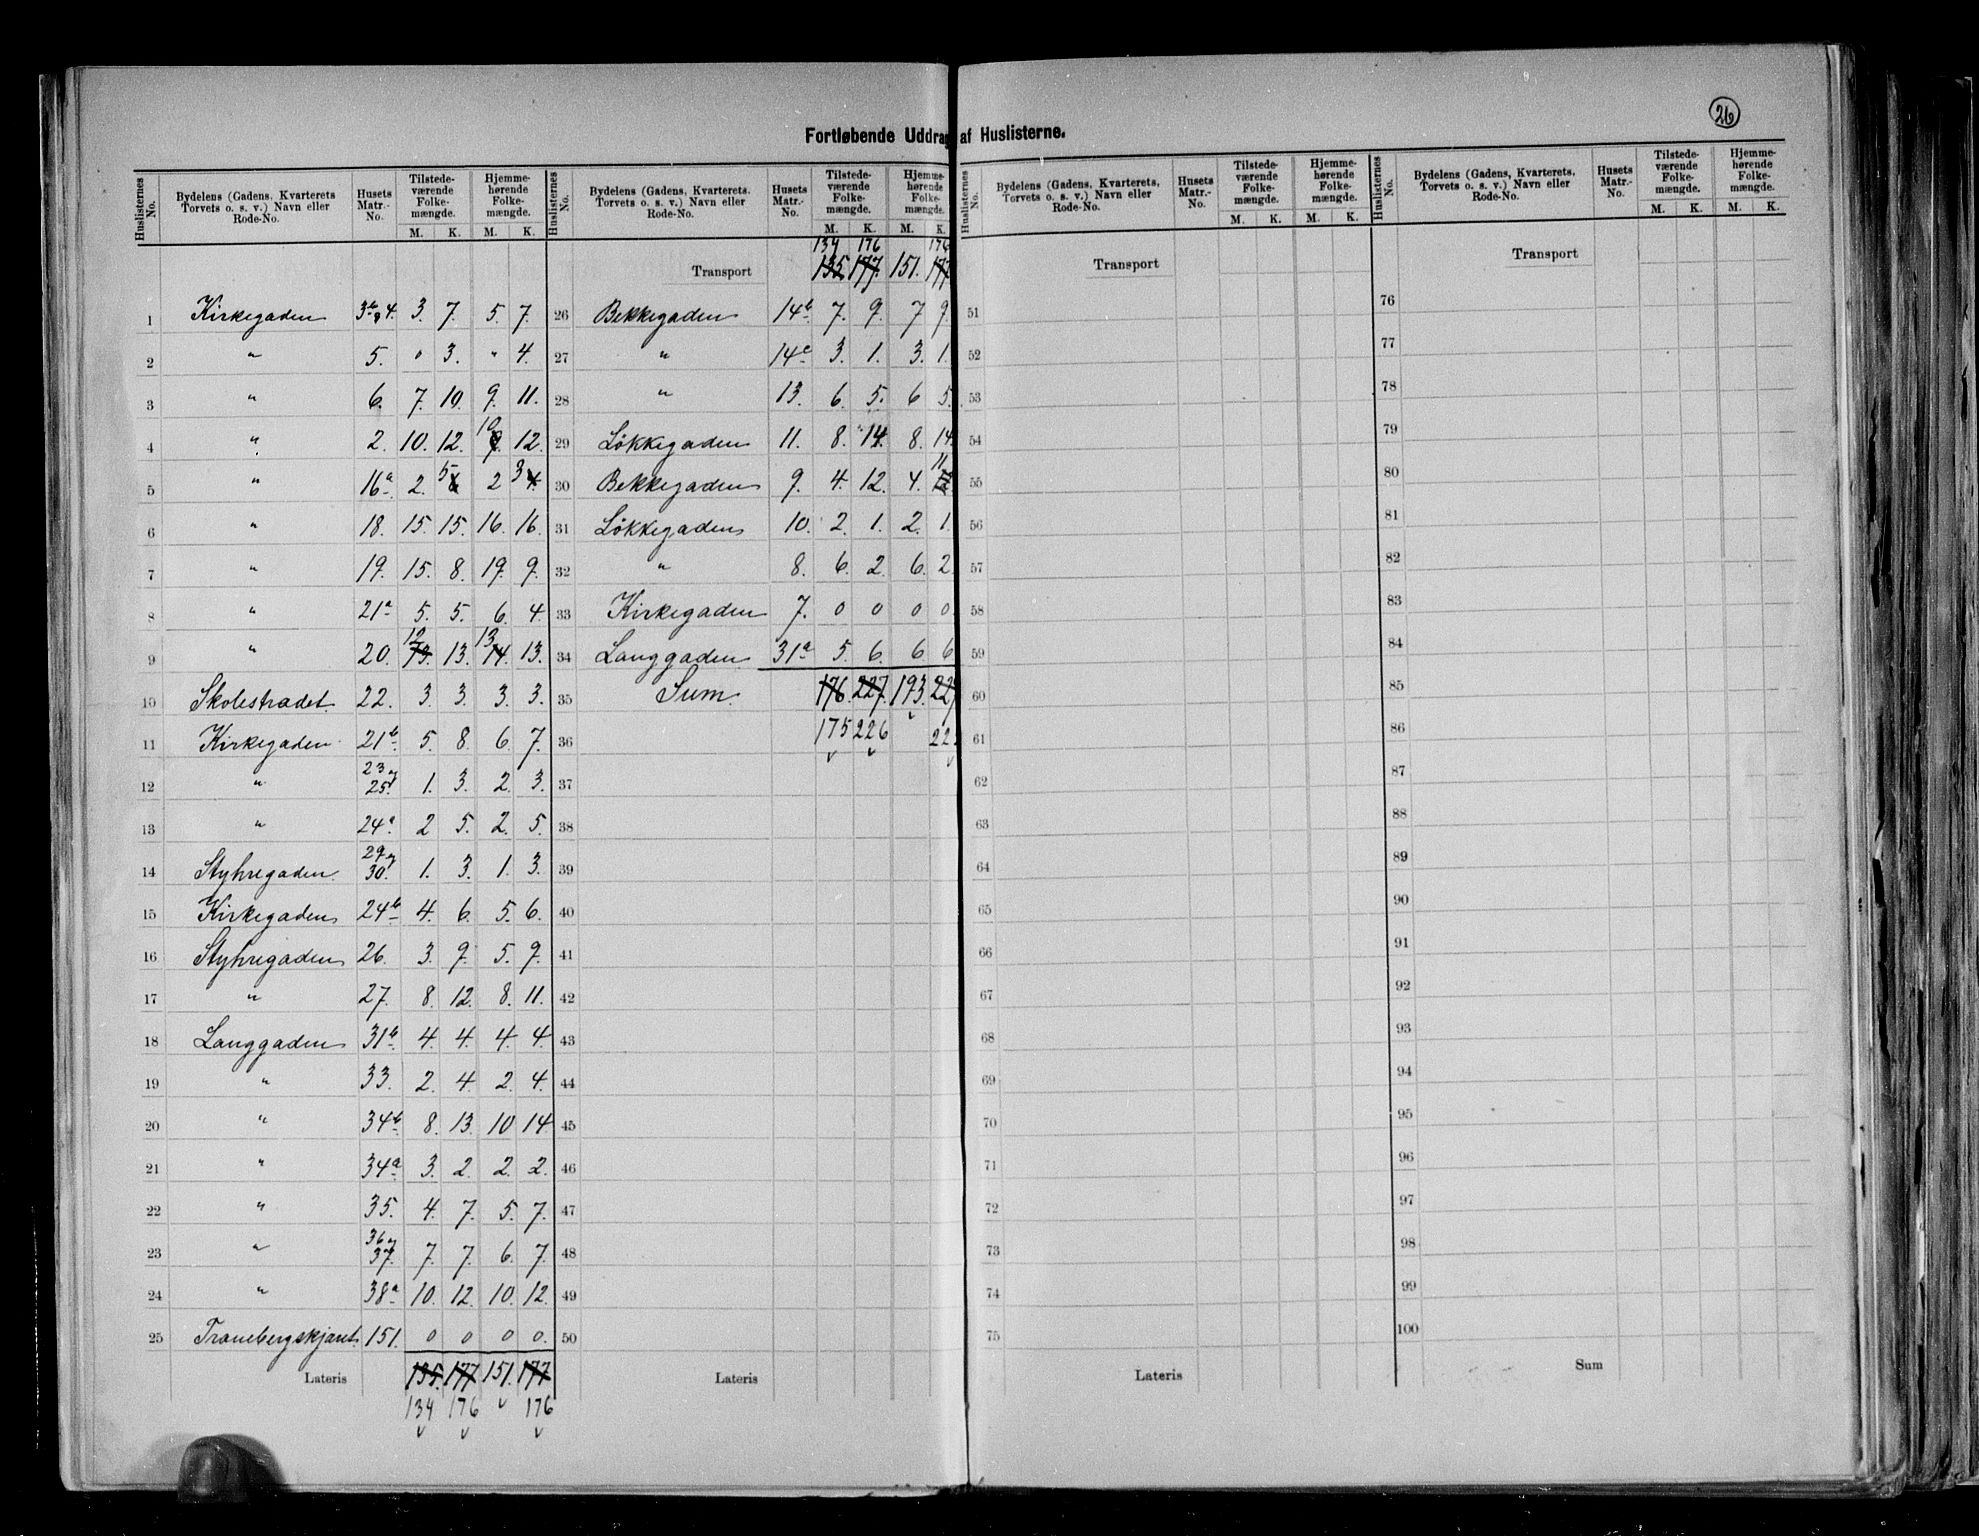 26
Fortløbende Uddrag af Huslisterne.
Huslisternes No. | Bydelens (Gadens, Kvarterets Torvets o. s. v.) Navn eller Rode-No. | Husets Matr.-No. | Tilstede-værende Folke-mængde. M. K. | Hjemme-hørende Folke-mængde. M. K.
1 Kirkegaden 3b og 4. 3. 7. 5. 7.
2 " 5. 0 3. " 4.
3 " 6. 7. 10. 9. 11.
4 " 2. 10. 12. 10 12.
5 " 16a 2. 5 2 3
6 " 18. 15. 15. 16. 16.
7 " 19. 15. 8. 19. 9.
8 " 21a 5. 5. 6. 4.
9 " 20. 12 13. 13. 13 14. 13.
10 Skolestrædet. 22. 3. 3. 3. 3.
11 Kirkegaden 21b 5. 8. 6. 7.
12 " 23 og 25. 1. 3. 2. 3.
13 " 24a 2 5. 2. 5.
14 Styhregaden. 29 og 30. 1. 3. 1. 3.
15 Kirkegaden 24b 4. 6. 5. 6.
16 Styhregaden 26. 3. 9. 5. 9.
17 " 27. 8. 12. 8. 11.
18 Langgaden 31b 4. 4. 4. 4.
19 " 33. 2. 4. 2. 4.
20 " 34b 8. 13. 10 14.
21 " 34a 3. 2. 2. 2.
22 " 35. 4. 7. 5. 7.
23 " 36 og 37. 7. 7. 6. 7.
24 " 38a 10. 12. 10. 12.
25 Tranebergskjæret 151. 0 0 0 0.
Lateris 135. 177 151. 177
134 176 176
Huslisternes No. | Bydelens (Gadens, Kvarterets. Torvets o. s. v.) Navn eller Rode-No. | Husets Matr.-No. | Tilstede-værende Folke-mængde. M. K. | Hjemme-hørende Folke-mængde. M. K.
134 176 176
Transport 135. 177. 151. 177
26 Bekkegaden 14b 7. 9. 7 9.
27 " 14c 3. 1. 3. 1.
28 " 13. 6. 5. 6 5.
29 Løkkegaden 11. 8. 14. 8. 14.
30 Bekkegaden 9. 4. 12. 4. 11 12.
31 Løkkegaden 10. 2. 1. 2. 1.
32 " 8. 6. 2. 6. 2
33 Kirkegaden 7. 0 0 0 0.
34 Langgaden 31a 5. 6. 6 6
35 Sum. 176. 227. 193. 227
36 175 226 22
37
38
39
40
41
42
43
44
45
46
47
48
49
50
Lateris
Huslisternes No. | Bydelens (Gadens, Kvarterets, Torvets o. s. v.) Navn eller Rode-No. | Husets Matr.-No. | Tilstede-værende Folke-mængde. M. K. | Hjemme-hørende Folke-mængde. M. K.
Transport
51
52
53
54
55
56
57
58
59
60
61
62
63
64
65
66
67
68
69
70
71
72
73
74
75
Lateris
Huslisternes No. | Bydelens (Gadens, Kvarterets, Torvets o. s. v.) Navn eller Rode-No. | Husets Matr.-No. | Tilstede-værende Folke-mængde. M. K. | Hjemme-hørende Folke-mængde. M. K.
Transport
76
77
78
79
80
81
82
83
84
85
86
87
88
89
90
91
92
93
94
95
96
97
98
99
100
Sum